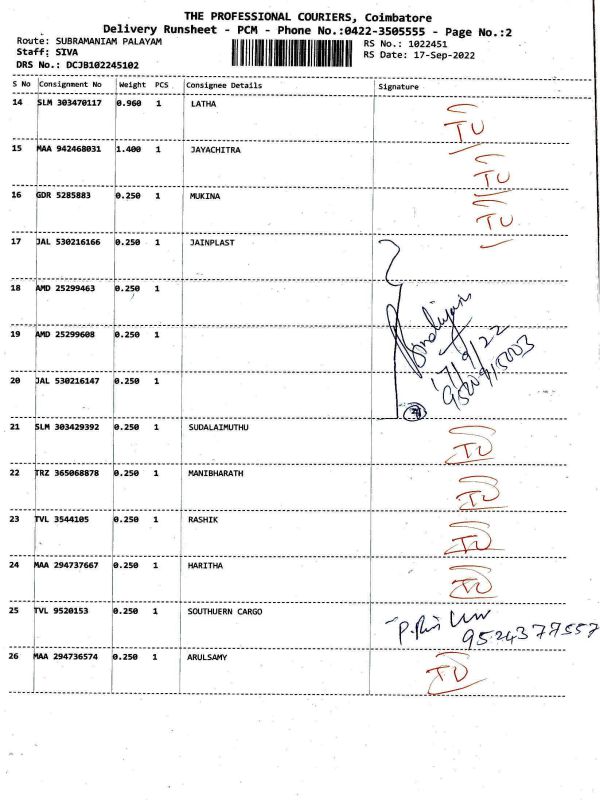 THE PROFESSIONAL COURIERS, Coimbatore
Delivery Runsheet - PCM - Phone No.:0422-3505555 - Page No.:2
Route: SUBRAMANIAM PALAYAM
RS No.: 1022451
Staff: SIVA
RS Date: 17-Sep-2022
DRS No.: DCJB102245102
S No Consignment No Weight PCS Consignee Details Signature
14 SLM 303470117 0.960 1 LATHA TU
15 MAA 942468031 1.400 1 JAYACHITRA TU
16 GDR 5285883 0.250 1 MUKINA TU
17 JAL 530216166 0.250 1 JAINPLAST
18 AMD 25299463 0.250 1
19 AMD 25299608 0.250 1
17/9/22
20 JAL 530216147 0.250 1
21 SLM 303429392 0.250 1 SUDALAIMUTHU TU
22 TRZ 365068878 0.250 1 MANIBHARATH TU
23 TVL 3544105 0.250 1 RASHIK TU
24 MAA 294737667 0.250 1 HARITHA TU
25 TVL 9520153 0.250 1 SOUTHUERN CARGO
26 MAA 294736574 0.250 1 ARULSAMY TU